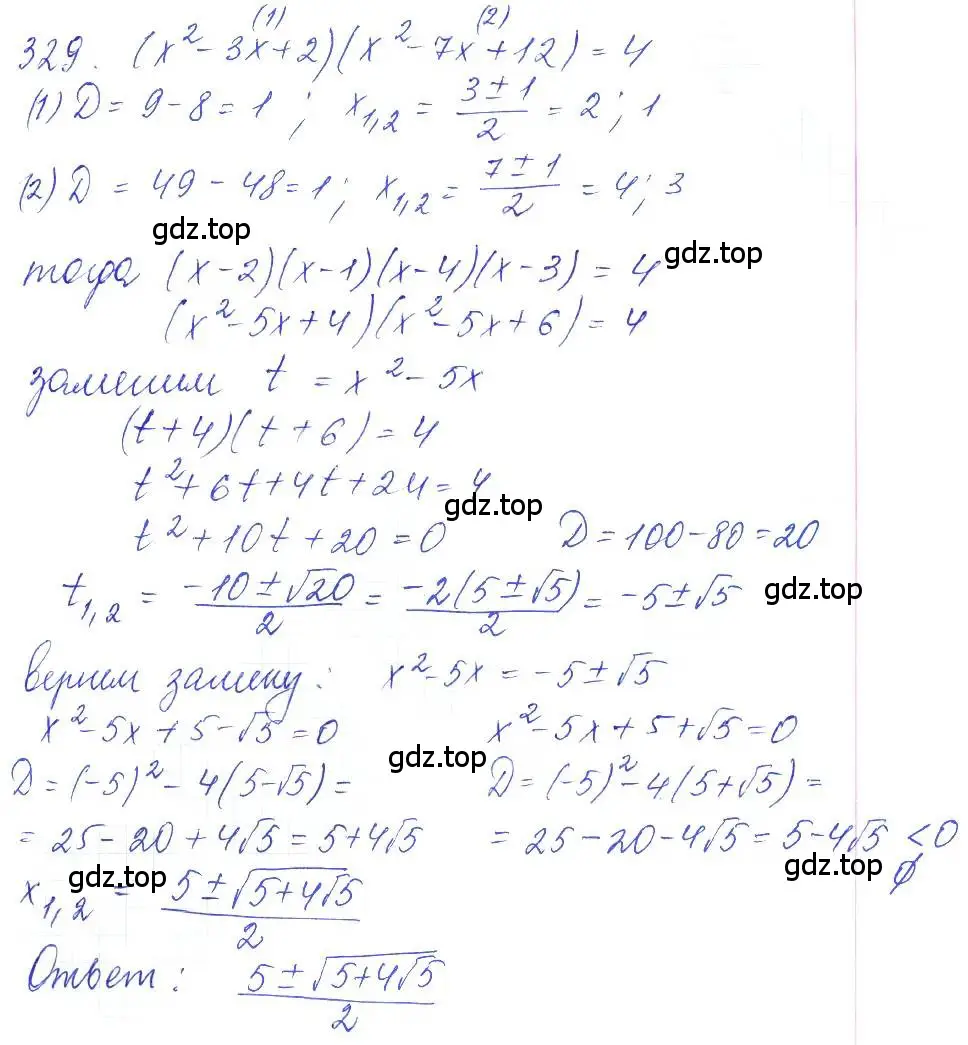 (1) (2)
329. (x² - 3x + 2)(x² - 7x + 12) = 4
(1) D = 9 - 8 = 1 ; x₁,₂ = (3 ± 1)/2 = 2; 1
(2) D = 49 - 48 = 1; x₁,₂ = (7 ± 1)/2 = 4; 3
gdz.top
тогда (x - 2)(x - 1)(x - 4)(x - 3) = 4 gdz.top
(x² - 5x + 4)(x² - 5x + 6) = 4
заменим t = x² - 5x
(t + 4)(t + 6) = 4
t² + 6t + 4t + 24 = 4
gdz.top
t² + 10t + 20 = 0 D = 100 - 80 = 20
t₁,₂ = (-10 ± √20)/2 = (-2(5 ± √5))/2 = -5 ± √5 gdz.top
вернем замену: x² - 5x = -5 ± √5
x² - 5x + 5 - √5 = 0 x² - 5x + 5 + √5 = 0
gdz.top
D = (-5)² - 4(5 - √5) = D = (-5)² - 4(5 + √5) =
= 25 - 20 + 4√5 = 5 + 4√5 = 25 - 20 - 4√5 = 5 - 4√5 < 0
gdz.top gdz.top ∅
x₁,₂ = (5 ± √(5 + 4√5))/2
Ответ: (5 ± √(5 + 4√5))/2